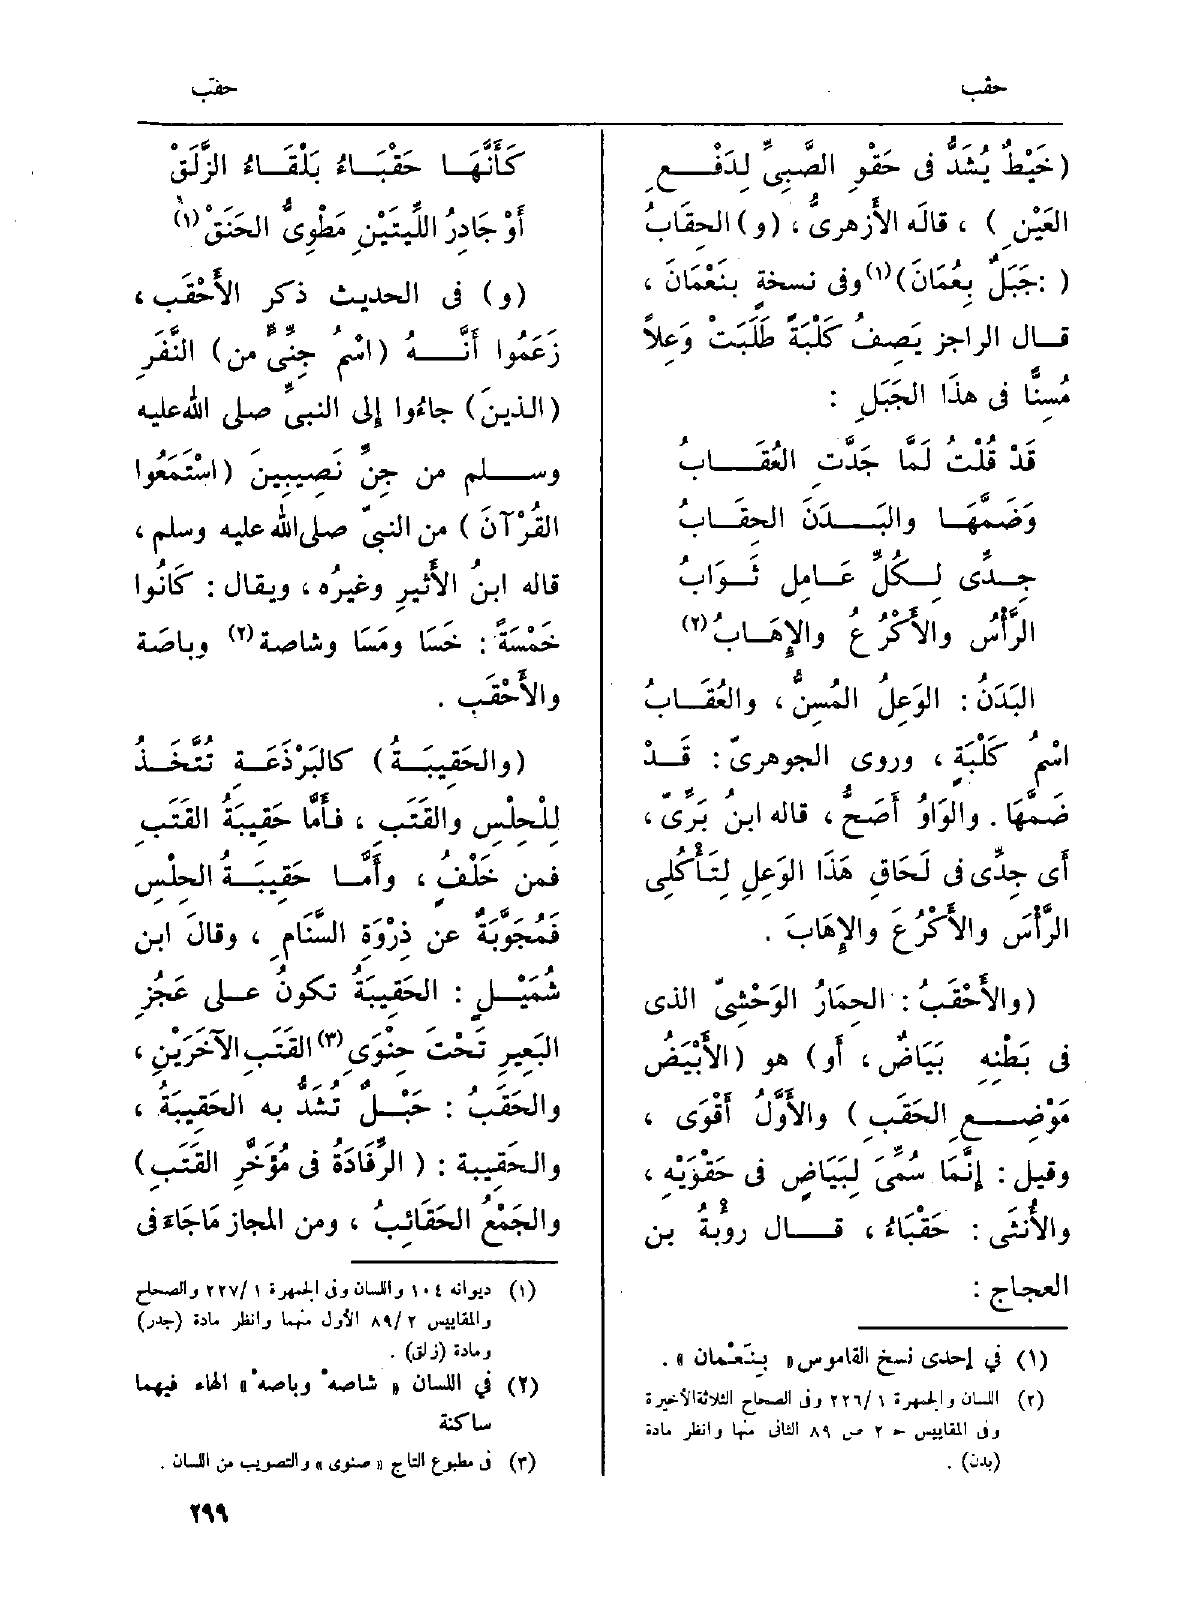 حقب
حقب
(خَيْطٌ يُشَدُّ فى حَقْوِ الصَّبِىِّ لِدَفْعِ
العَيْنِ) ، قالَه الأَزهرىُّ ، (و) الحِقَابُ
(:جَبَلٌ بِعُمَانَ)(١) وفى نسخةٍ بِنَعْمَانَ ،
قال الراجز يَصِفُ كَلْبَةً طَلَبَتْ وَعِلاً
مُسِنًّا فى هذَا الجَبَلِ :
قَدْ قُلْتُ لَمَّا جَدَّتِ العُقَابُ
وَضَمَّهَا والبَدَنَ الحِقَابُ
جِدِّى لِكُلِّ عَامِلٍ ثَوَابُ
الرَّأْسُ والأَكْرُعُ والإِهَابُ (٢)
البَدَنُ : الوَعِلُ المُسِنُّ ، والعُقَابُ
اسْمُ كَلْبَةٍ ، وروى الجوهرىّ : قَدْ
ضَمَّهَا . والوَاوُ أَصَحُّ ، قاله ابنُ بَرِّىّ ،
أَى جِدِّى فى لَحَاقِ هَذَا الوَعِلِ لِتَأْكُلِى
الرَّأْسَ والأَكْرُعَ والإِهَابَ .
(والأَحْقَبُ : الحِمَارُ الوَحْشِىّ الذى
فى بَطْنِهِ بَيَاضٌ ، أَو) هو (الأَبْيَضُ
مَوْضِعِ الحَقَبِ) والأَوَّلُ أَقْوَى ،
وقيل : إِنَّمَا سُمِّىَ لِبَيَاضٍ فى حَقْوَيْهِ ،
والأُنْثَى : حَقْبَاءُ ، قال رؤْبَةُ بن
العجاج :
(١) في إحدى نسخ القاموس « بِنَعْمان » .
(٢) اللسان والجمهرة ٢٢٦/١ وفى الصحاح الثلاثة الأخيرة
وفى المقاييس ح ٢ ص ٨٩ الثانى منها وانظر مادة
(بدن) .
كَأَنَّهَا حَقْبَاءُ بَلْقَاءُ الزَّلَقْ
أَوْ جَادِرُ اللِّيتَيْنِ مَطْوِىُّ الحَنَقْ (١)
(و) فى الحديث ذكر الأَحْقَب ،
زَعَمُوا أَنَّهُ (اسْمُ جِنِّىٍّ من) النَّفَرِ
(الذينَ) جاءُوا إِلى النبىِّ صلى الله عليه
وسلم من جِنِّ نَصِيبِينَ (اسْتَمَعُوا
القُرْآنَ) من النبىّ صلى الله عليه وسلم ،
قاله ابنُ الأَثيرِ وغيرُه ، ويقال : كَانُوا
خَمْسَةً : خَسَا ومَسَا وشاصة (٢) وباصَة
والأَحْقَب .
(والحَقِيبَةُ) كالبَرْذَعَةِ تُتَّخَذُ
لِلْحِلْسِ والقَتَبِ ، فأَمَّا حَقِيبَةُ القَتَبِ
فمن خَلْفٍ ، وأَمَّا حَقِيبَةُ الحِلْسِ
فَمُجَوَّبَةٌ عن ذِرْوَةِ السَّنَامِ ، وقالَ ابن
شُمَيْلٍ : الحَقِيبَةُ تكونُ على عَجُزِ
البَعِيرِ تَحْتَ حِنْوَىِ (٣) القَتَبِ الآخَرَيْنِ ،
والحَقَبُ : حَبْلٌ تُشَدُّ به الحَقِيبَةُ ،
والحقِيبة : (الرِّفَادَةُ فى مُؤَخَّرِ القَتَبِ)
والجَمْعُ الحَقَائبُ ، ومن المجاز مَاجَاءَ فى
(١) ديوانه ١٠٤ واللسان وفى الجمهرة ٢٢٧/١ والصحاح
والمقاييس ٨٩/٢ الأول منهما وانظر مادة (جدر)
ومادة (زلق) .
(٢) في اللسان « شاصهْ وباصهْ » الهاء فيهما
ساكنة
(٣) فى مطبوع التاج « صنوى » والتصويب من اللسان .
٢٩٩